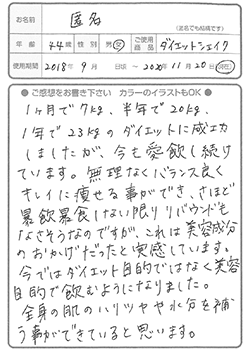 お名前 匿名
(匿名でも結構です)
年齢 44歳 性別 男・女 ご使用商品 ダイエットシェイク
使用期間 2018年 9月 日頃 ～ 2020年 11月 20日(現在)
● ご感想をお書き下さい カラーのイラストもOK ●
1ヶ月で7kg、半年で20kg、
1年で23kgのダイエットに成功
しましたが、今も愛飲し続けて
います。無理なくバランス良く
キレイに痩せる事ができ、さほど
暴飲暴食しない限りリバウンドも
なさそうなのですが、これは美容成分
のおかげだったと実感しています。
今ではダイエット目的ではなく美容
目的で飲むようになりました。
全身の肌のハリツヤや水分を補
う事ができていると思います。